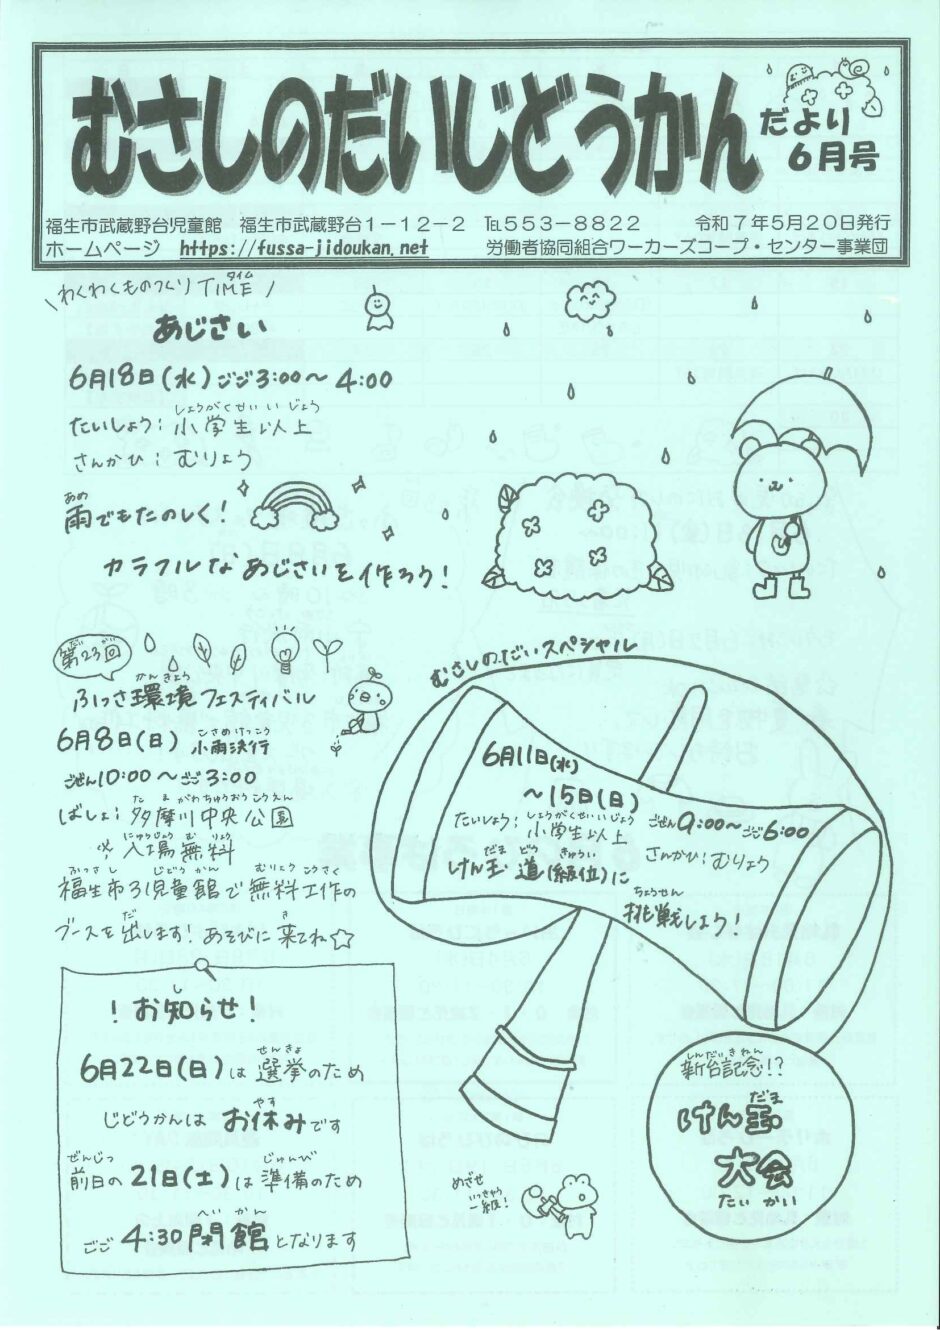 むさしのだいじどうかん だより
6月号
福生市武蔵野台児童館 福生市武蔵野台1－12－2 ℡553－8822 令和7年5月20日発行
ホームページ https://fussa-jidoukan.net 労働者協同組合ワーカーズコープ・センター事業団
\わくわくものづくりTIME/
タイム
あじさい
6月18日(水)ごご3:00～4:00
しょうがくせいいじょう
たいしょう：小学生以上
さんかひ：むりょう
あめ
雨でもたのしく！
カラフルなあじさいを作ろう！
だい かい
第23回
かんきょう
ふっさ環境フェスティバル
こさめけっこう
6月8日(日)小雨決行
ごぜん10:00～ごご3:00
たまがわちゅうおうこうえん
ばしょ：多摩川中央公園
にゅうじょうむりょう
※入場無料
ふっさし じどうかん むりょうこうさく
福生市3児童館で無料工作の
だ き
ブースを出します！あそびに来てね☆
し
！お知らせ！
せんきょ
6月22日(日)は選挙のため
やす
じどうかんはお休みです
ぜんじつ じゅんび
前日の21日(土)は準備のため
へいかん
ごご4:30閉館となります
むさしのだいスペシャル
6月11日(水)
～15日(日)
ごぜん9:00～ごご6:00
しょうがくせいいじょう
たいしょう：小学生以上
さんかひ：むりょう
だま どう きゅうい
けん玉道(級位)に
ちょうせん
挑戦しよう！
しんだいきねん
新台記念!?
だま
けん玉
大会
たいかい
めざせ
いっきゅう
一級！